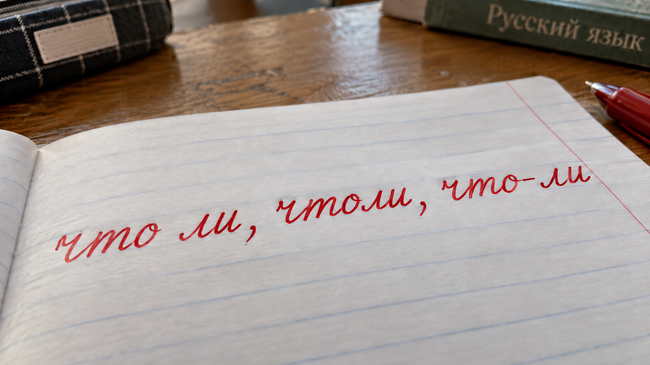 Русский язык
что ли, чтоли, что-ли